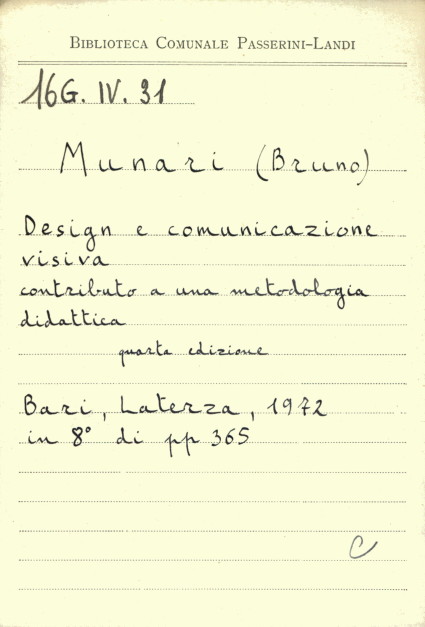 BIBLIOTECA COMUNALE PASSERINI-LANDI
16G. IV. 31
Munari (Bruno)
Design e comunicazione
visiva
contributo a una metodologia
didattica
quarta edizione
Bari, Laterza, 1972
in 8° di pp 365
C